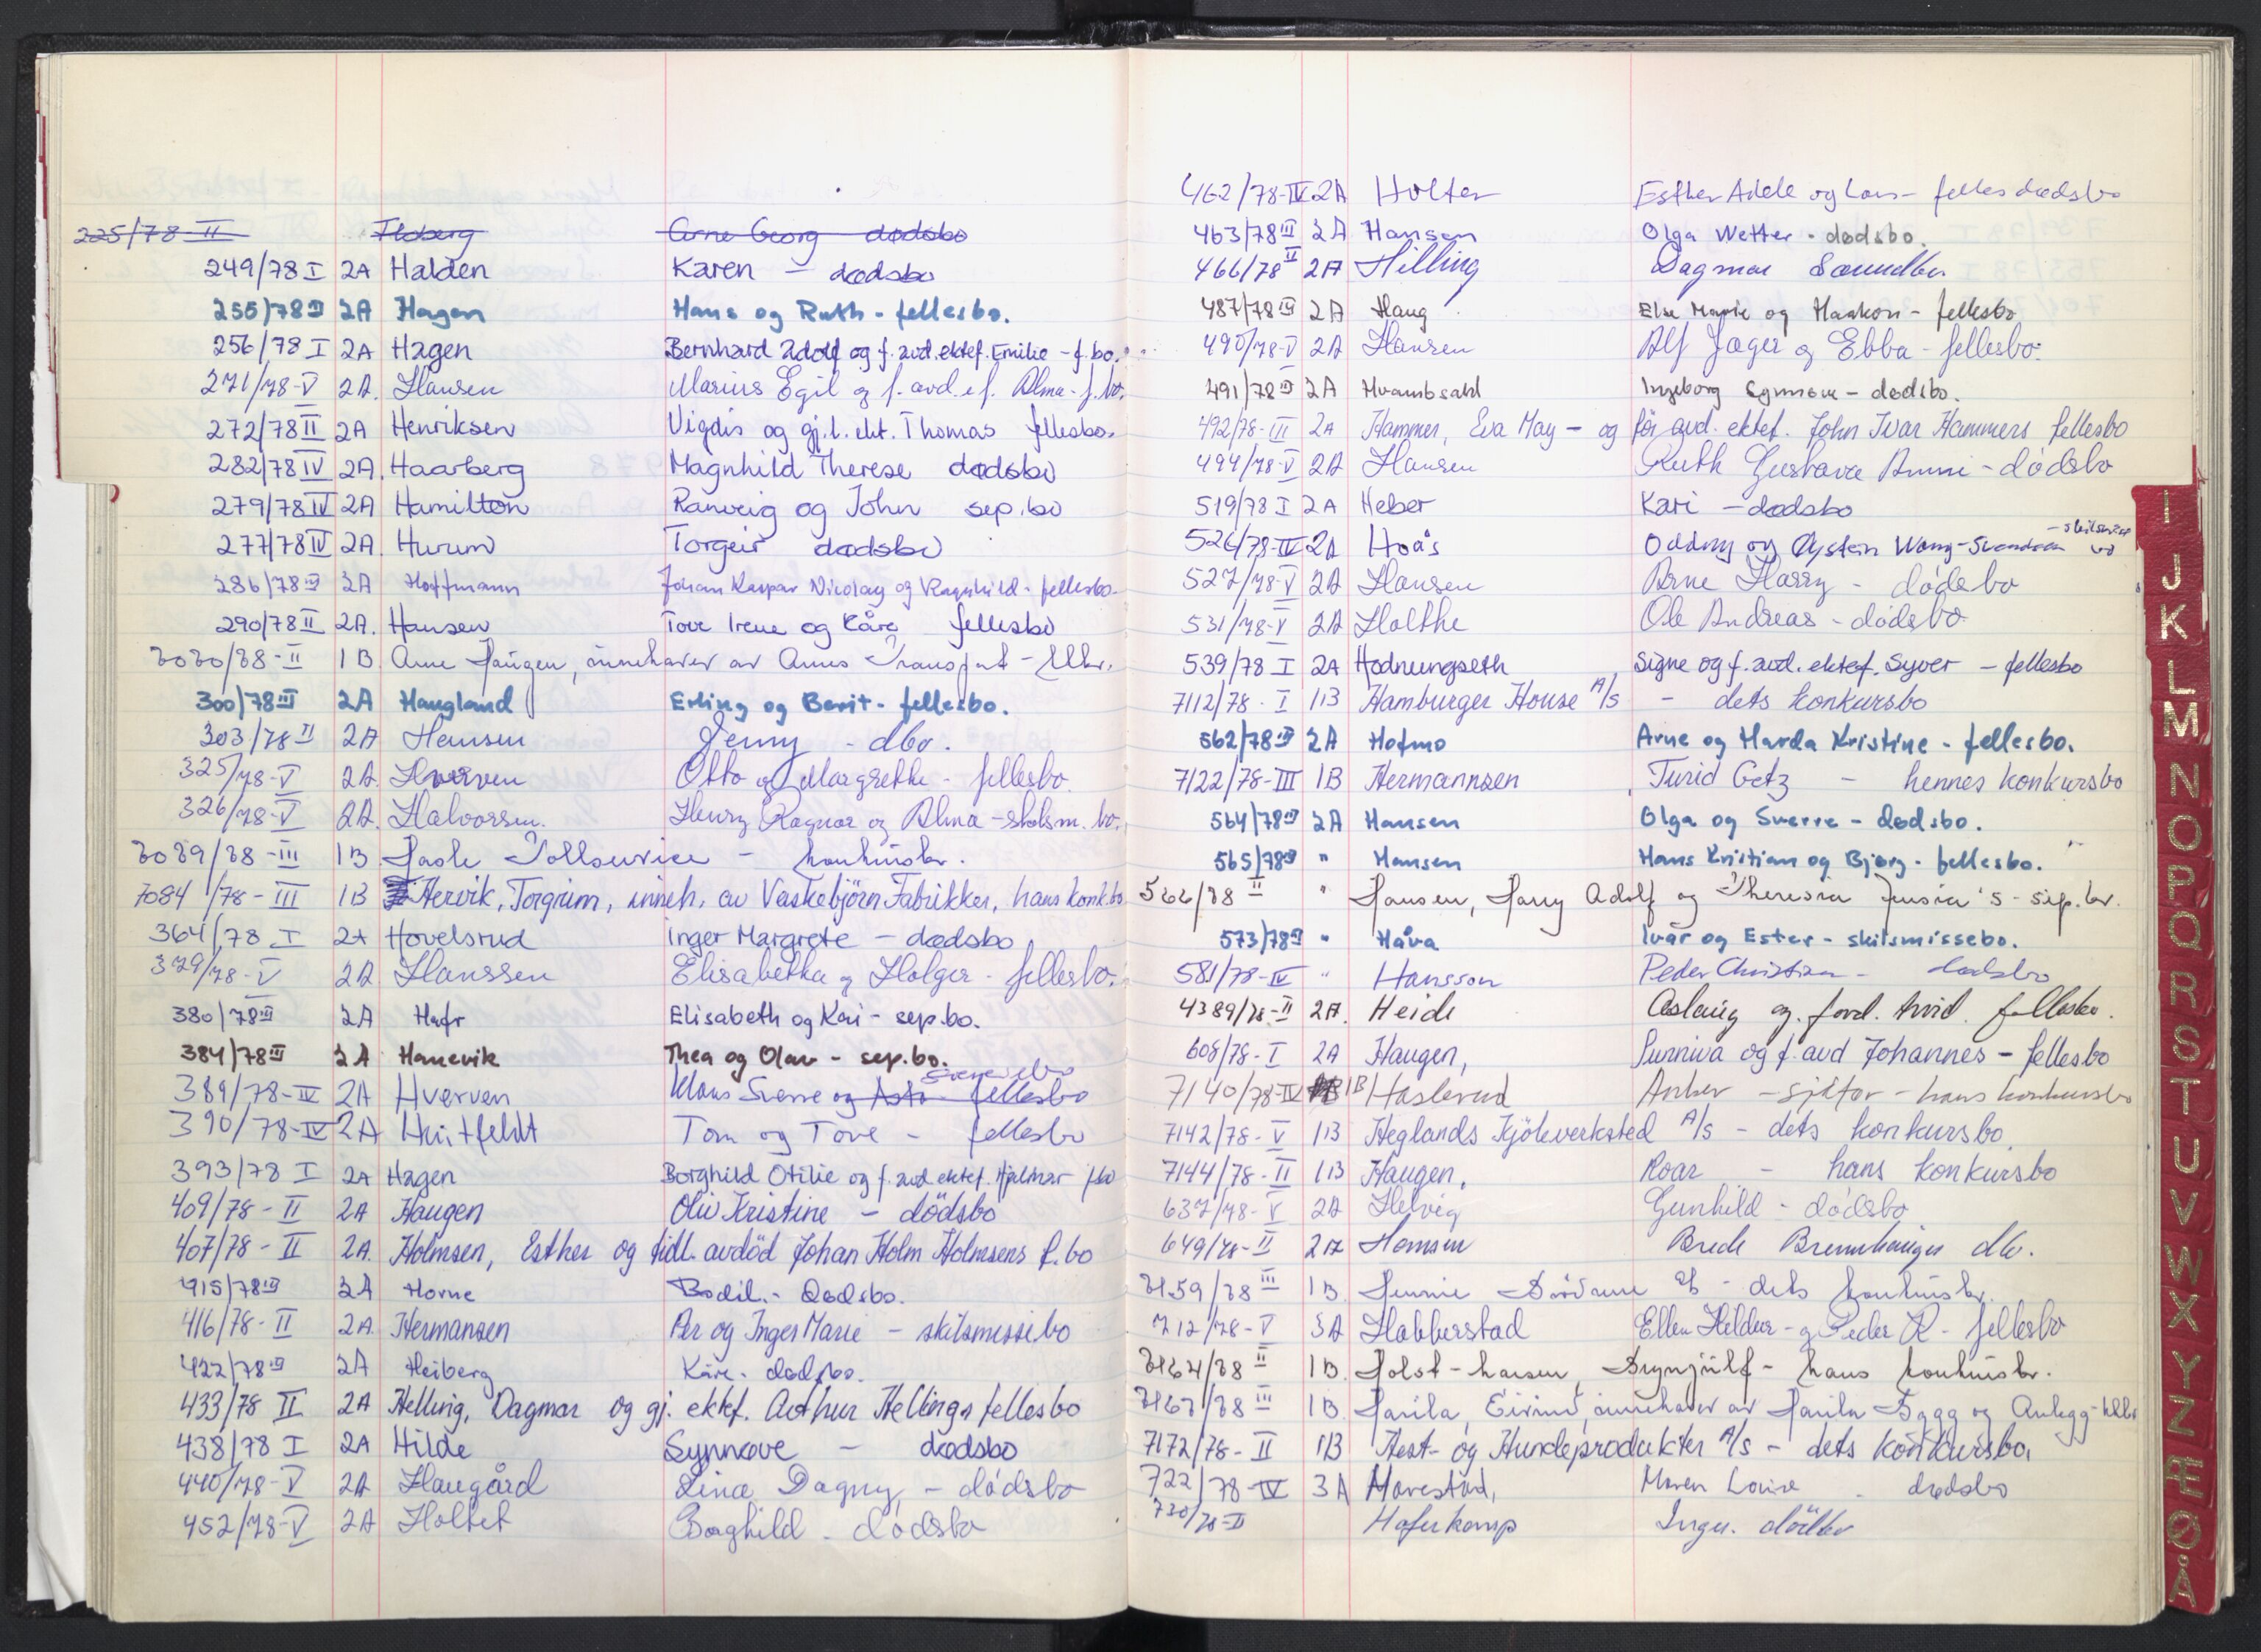 225/78 II Floberg Arne Georg dødsbo
249/78 I 2A Halden Karen - dødsbo
255/78 III 2A Hagen Hans og Ruth - fellesbo.
256/78 I 2A Hagen Bernhard Adolf og f. avd. ektef. Emilie - f.bo.
271/78-V 2A. Hansen Marius Egil og f. avd. e.f. Alma - f.bo.
272/78 II 2A Henriksen Vigdis og gj.l. ekt. Thomas fellesbo.
282/78 IV 2A. Haarberg Magnhild Therese dødsbo
279/78 IV 2A Hamilton Ranveig og John sep.bo
277/78 IV 2A. Hurum Torgeir dødsbo
286/78 III 2A Hoffmann Johan Kaspar Nicolay og Ragnhild - fellesbo.
290/78 II 2A. Hansen Tove Irene og Kåre fellesbo
7070/78-II 1B. Arne Haugen, innehaver av Arnes Transport -
300/78 III 2A Haugland Erling og Berit - fellesbo.
303/78 II 2A Hansen Jenny - dbo.
325/78-V 2A. Hverven Otto og Margrethe - fellesbo.
326/78-V 2A. Halvorsen. Henry Ragnar og Alma - skilsm. bo.
7079/78-III 1B Hasle - konkursbo.
7084/78-III 1B Hervik, Torgrim, inneh. av Vaskebjörn Fabrikker, hans konk.bo
364/78 I 2A Hovelsrud Inger Margrete - dødsbo
379/78-V 2A Hanssen Elisabetha og Holger - fellesbo.
380/78 III 2A Hafr Elisabeth og Kai - sep.bo.
384/78 III 2A Hanevik Thea og Olav - sep.bo.
389/78-IV 2A Hverven Klaus Sverre og Asta fellesbo
390/78-IV 2A Huitfeldt Tom og Tove - fellesbo
393/78 I 2A Hagen Borghild Otilie og f. avd ektef. Hjalmar fbo
409/78-II 2A Haugen Oliv Kristine - dödsbo
407/78-II 2A. Holmsen, Esther og tidl. avdöd Johan Holm Holmsens f.bo
415/78 III 2A Horne Bodil. - Dødsbo.
416/78-II 2A. Hermansen Per og Inger Marie - skilsmissebo
422/78 III 2A Heiberg Kåre - dødsbo.
433/78 II 2A Helling, Dagmar og gj. ektef. Arthur Hellings fellesbo
438/78 I 2A Hilde Synnøve - dødsbo
440/78-V 2A Haugård Lina Dagny - dødsbo
452/78-V 2A Holtet Borghild - dødsbo
462/78-IV 2A Holter Esther Adele og Lars - felles dødsbo
463/78 III 2A Hansen Olga Wetter - dødsbo.
466/78 II 2A Hilling Dagmar
487/78 III 2A Haug Else Marie og Haakon - fellesbo
490/78-V 2A Hansen Alf Jæger og Ebba - fellesbo.
491/78 III 2A Hvambsahl Ingeborg Synnøve - dødsbo.
492/78-III 2A Hammer, Eva May - og för avd. ektef. John Ivar Hammers fellesbo
494/78-V 2A Hansen Ruth Gustava - dødsbo
519/78 I 2A Heber Kari - dødsbo
526/78-IV 2A Hoås Oddny og Øystein Wang-Svendsen - skilsmisse bo
527/78-V 2A Hansen Arne Harry - dødsbo
531/78-V 2A Holthe Ole Andreas - dødsbo
539/78 I 2A Hodnungseth Signe og f. avd. ektef. Syver - fellesbo
7112/78-I 1B Hamburger House A/s - dets konkursbo
562/78 III 2A Hofmo Arne og Marda Kristine - fellesbo.
7122/78-III 1B Hermannsen Turid Getz - hennes konkursbo
564/78 III 2A Hansen Olga og Sverre - dødsbo.
565/78 III " Hansen Hans Kristian og Bjørg - fellesbo.
566/78 II " Hansen, Harry Adolf og Theresia Jensia's - sep.bo.
573/78 III " Håva Ivar og Ester - skilsmissebo.
581/78-IV " Hansson Peder Christian - dødsbo
4389/78-II 2A. Heide Aslaug og f. avd. Arvid fellesbo.
608/78-I 2A Haugen, Purniva og f. avd Johannes - fellesbo
7140/78-IV 1B Haslerud Anker - sjåfør - hans konkursbo
7142/78-V 1B Heglands Kjökverksted A/s - dets konkursbo.
7144/78-II 1B Haugen, Roar - hans konkursbo
637/78-V 2A Helvig Gunhild - dødsbo
649/78-II 2A Hansen Brede dbo.
7159/78 III 1B. - dets konkursbo.
712/78-V 3A Habberstad Ellen Heldur - og Peder R - fellesbo
7164/78 II 1B. Holst-hansen, Brynjulf - hans konkursbo.
7167/78 III 1B. Harila, Eivind, innehaver av Harila Bygg og Anlegg -
7172/78-II 1B Hest- og Hundeprodukter A/s - dets konkursbo.
722/78-IV 3A Hovestad, Maren Lovise - dødsbo
730/78-II Haferkamp Inger. dödsbo